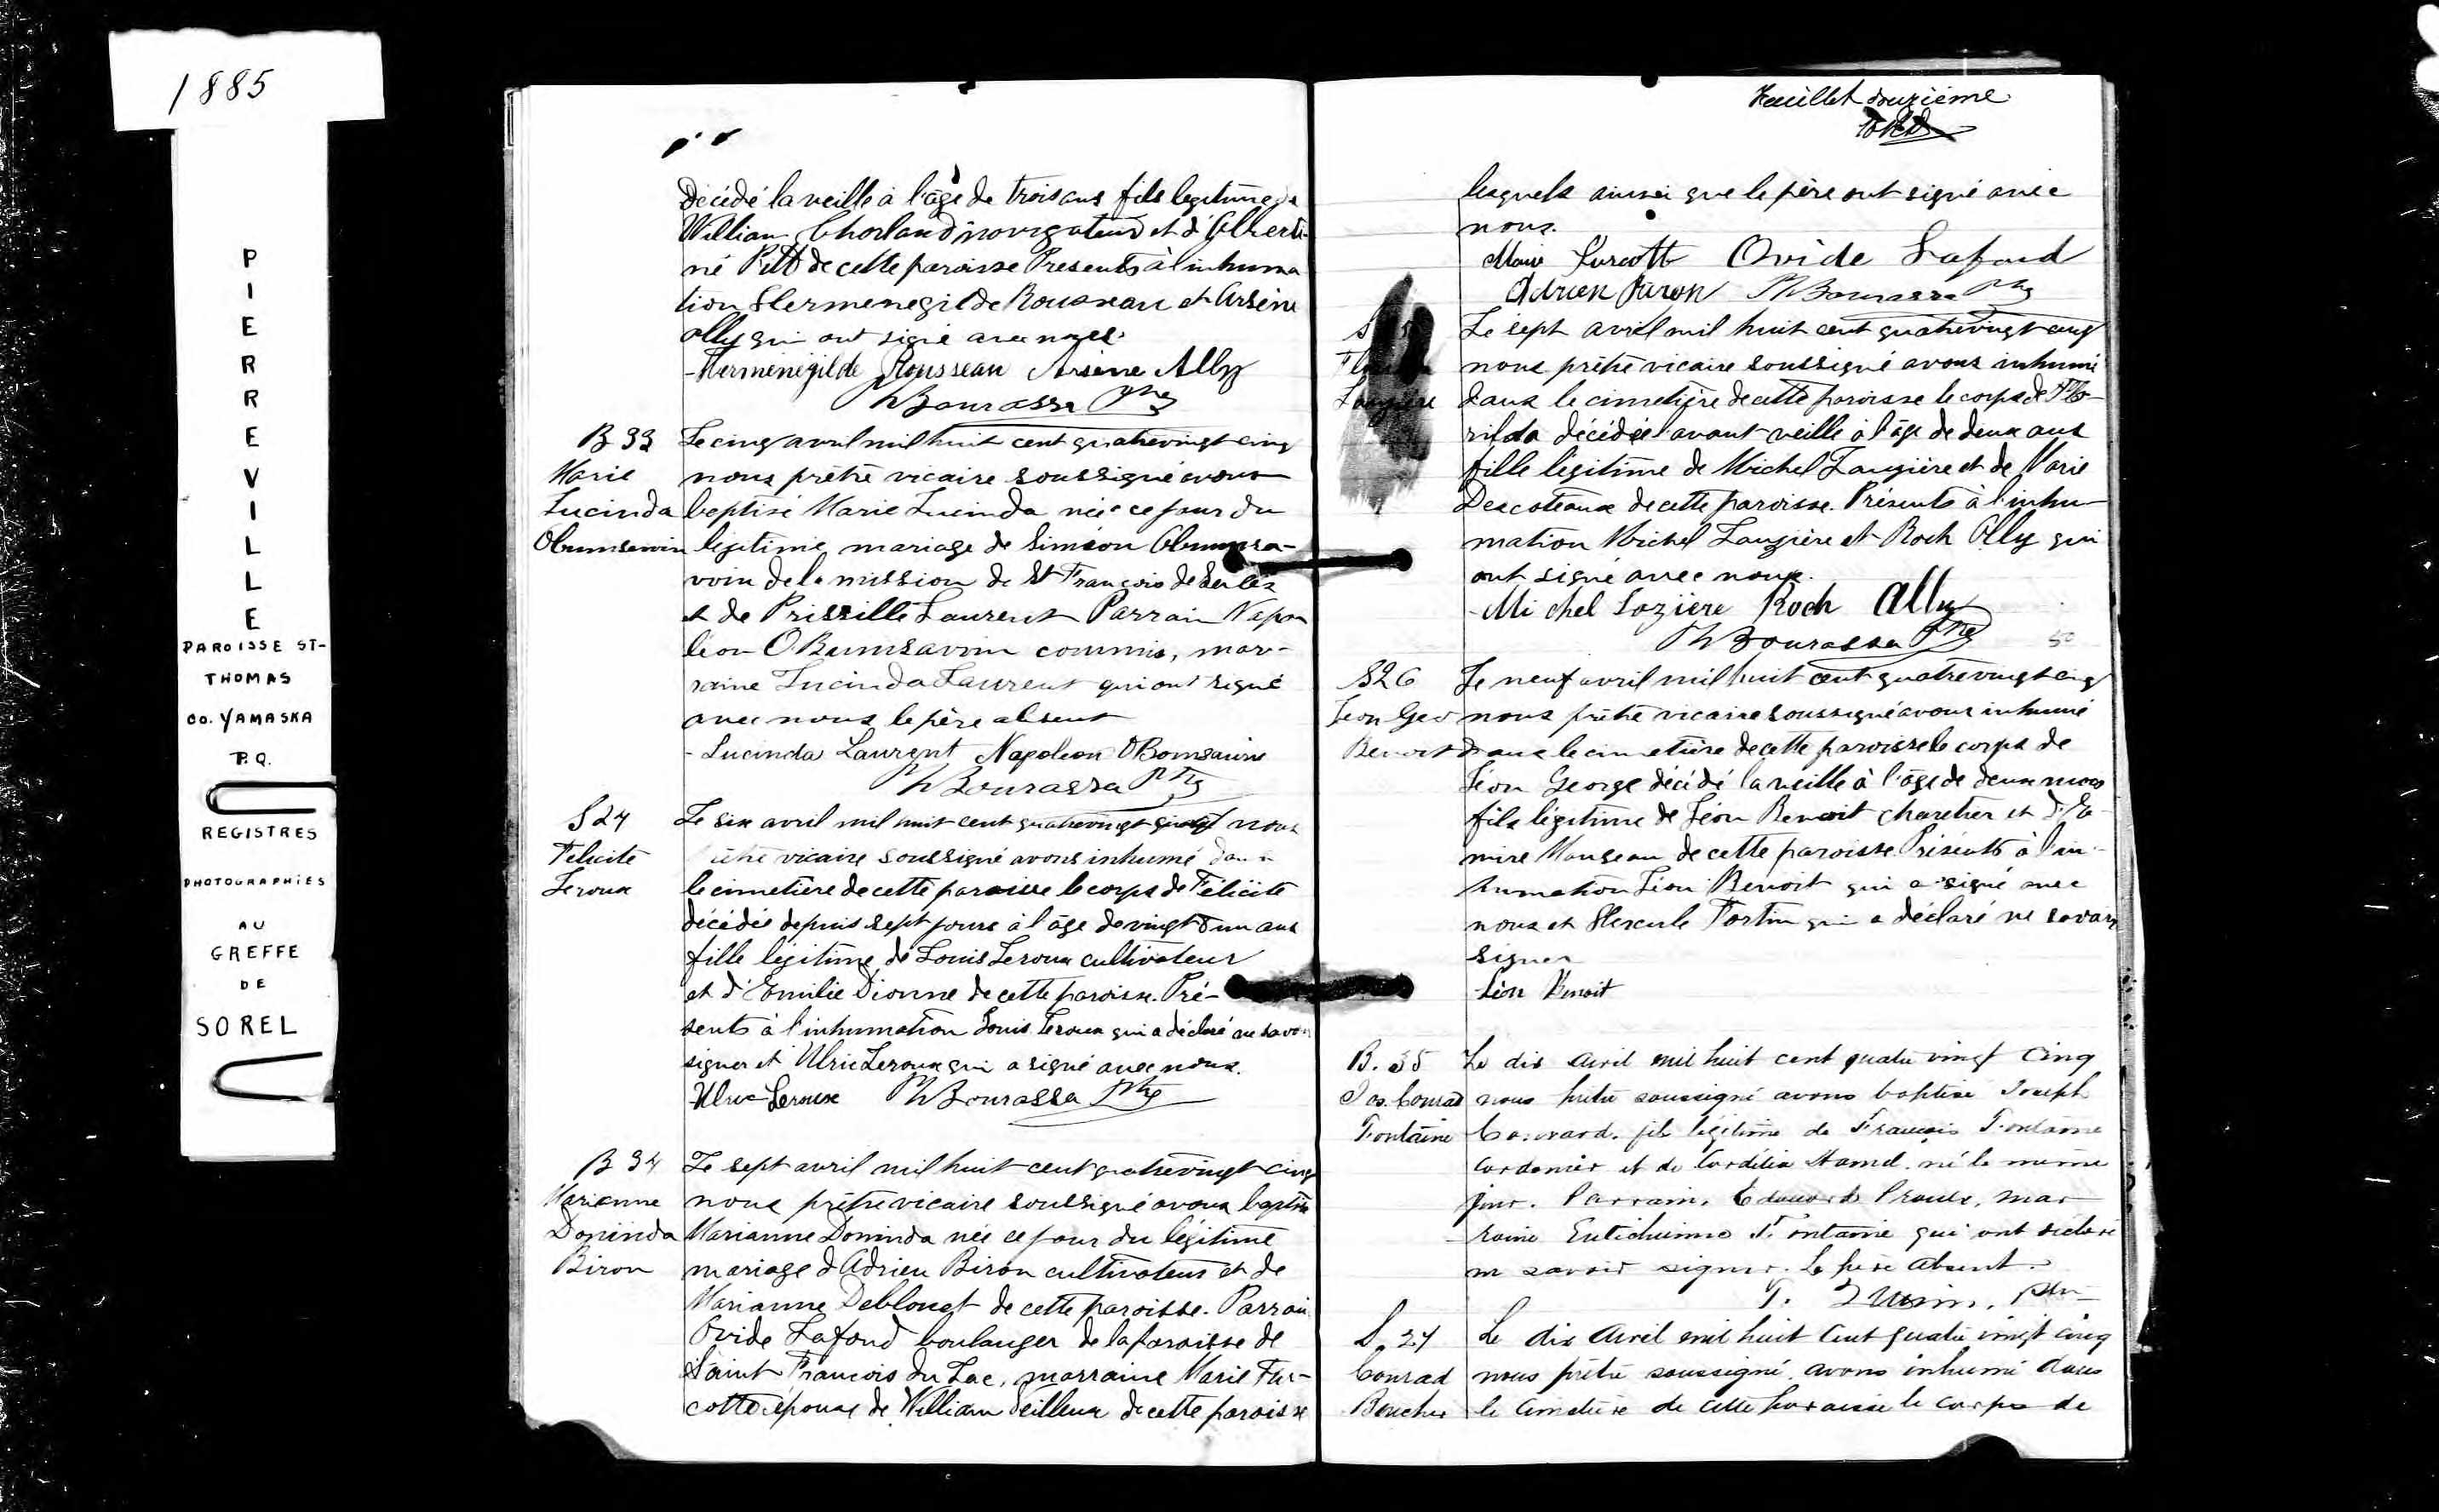 1885
PIERREVILLE
PAROISSE ST-
THOMAS
CO. YAMASKA
P.Q.
REGISTRES
PHOTOGRAPHIES
AU
GREFFE
DE
SOREL
Décédé la veille à l'âge de trois ans fils legitime de
William Chorland navigateur et d'Alberti-
né Pitt de cette paroisse Presents à l'inhuma
tion Hermenegilde Rousseau et Arsène
Ally qui ont signé avec nous.
Hermenégilde Rousseau Arsène Ally
Ph Bourassa Ptre
B 33
Marie
Lucinda
Obumsawin
Le cinq avril mil huit cent quatrevingt cinq
nous prêtre vicaire soussigné avons
baptisé Marie Lucinda née ce jour du
legitime mariage de Siméon Obumsa-
voin de la mission de St François de Sales
et de Prissille Laurent Parrain Napo
léon O.Bumsavin commis, mar-
raine Lucinda Laurent qui ont signé
avec nous le père absent
Lucinda Laurent Napoleon OBomsawin
Ph Bourassa Ptre
S 24
Felicité
Leroux
Le six avril mil huit cent quatrevingt cinq nous
prêtre vicaire soussigné avons inhumé dans
le cimetière de cette paroisse le corps de Félicité
décédée depuis sept jours à l'âge de vingt d'un ans
fille légitime de Louis Leroux cultivateur
et d'Emilie Dionne de cette paroisse. Pré-
sents à l'inhumation Louis Leroux qui a déclaré ne savoir
signer et Ulric Leroux qui a signé avec nous.
Ulric Leroux Ph Bourassa Ptre
B 34
Marianne
Doninda
Biron
Le sept avril mil huit cent quatrevingt cinq
nous prêtre vicaire soussigné avons baptisé
Marianne Doninda née ce jour du légitime
mariage d'Adrien Biron cultivateur et de
Marianne Deblonet de cette paroisse. Parrain
Ovide Lafond boulanger de la paroisse de
Saint François du Lac, marraine Marie Tur-
cotte épouse de William Veilleux de cette paroisse
Feuillet douzième
lesquels ainsi que le père ont signé avec
nous.
Marie Turcott Ovide Lafond
Adrien Biron Ph Bourassa Ptre
Le sept avril mil huit cent quatrevingt cinq
nous prêtre vicaire soussigné avons inhumé
dans le cimetière de cette paroisse le corps de Flo-
rilda décédée l'avant veille à l'âge de deux ans
fille légitime de Michel Lauzière et de Marie
Descoteaux de cette paroisse. Présents à l'inhu-
mation Michel Lauzière et Roch Ally qui
ont signé avec nous.
Michel Lozière Roch Ally
Ph Bourassa Ptre
S 26
Léon Geo
Benoit
Le neuf avril mil huit cent quatrevingt cinq
nous prêtre vicaire soussigné avons inhumé
dans le cimetière de cette paroisse le corps de
Léon George décédé la veille à l'âge de deux mois
fils légitime de Léon Benoit charetier et d'El-
mire Manseau de cette paroisse Présents à l'in-
humation Léon Benoit qui a signé avec
nous et Hercule Fortin qui a déclaré ne savoir
signer
Léon Benoit
B. 35
Jos. Conrad
Fontaine
Le dix avril mil huit cent quatre vingt cinq
nous prêtre soussigné avons baptisé Joseph
Conrard, fils légitime de François Fontaine
cordonier et de Cordélia Hamel. né le meme
jour. Parrain, Edouard Proulx, mar
raine Fontaine qui ont déclaré
ne savoir signer. Le père absent.
Ptre
S. 27
Conrad
Boucher
Le dix avril mil huit cent quatre vingt cinq
nous prêtre soussigné, avons inhumé dans
le cimetière de cette paroisse le corps de